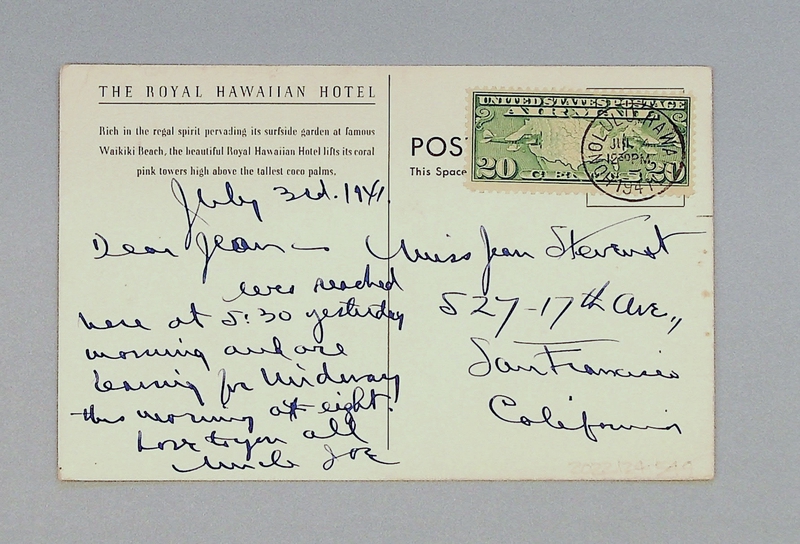 THE ROYAL HAWAIIAN HOTEL
Rich in the regal spirit pervading its surfside garden at famous
Waikiki Beach, the beautiful Royal Hawaiian Hotel lifts its coral
pink towers high above the tallest coco palms.
July 3rd. 1941.
Dear Jean —
reached
here at 5:30 yesterday
morning and are
leaving for Midway
this morning at eight.
Love to you all
Uncle Joe
POS
This Space
UNITED STATES POSTAGE
AIR MAIL
20 20
HONOLULU, HAWAII
JUL
1230 PM
1941
Miss Jean Stewart
527-17th Ave.,
San Francisco
California